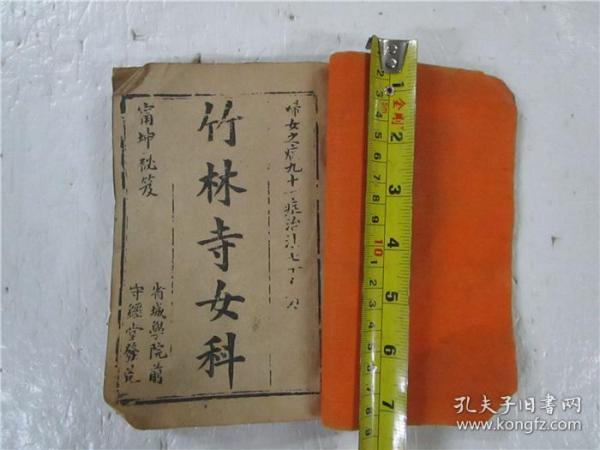 婦女之症九十一症治法七十
竹林寺女科
甯坤秘笈
省城學院前
守經堂發兌
金剛
1
2
3
4
5
6
7
10
孔夫子旧书网
www.kongfz.com